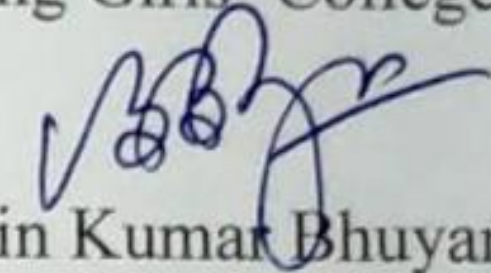 ng Girls' College
in Kumar Bhuyan